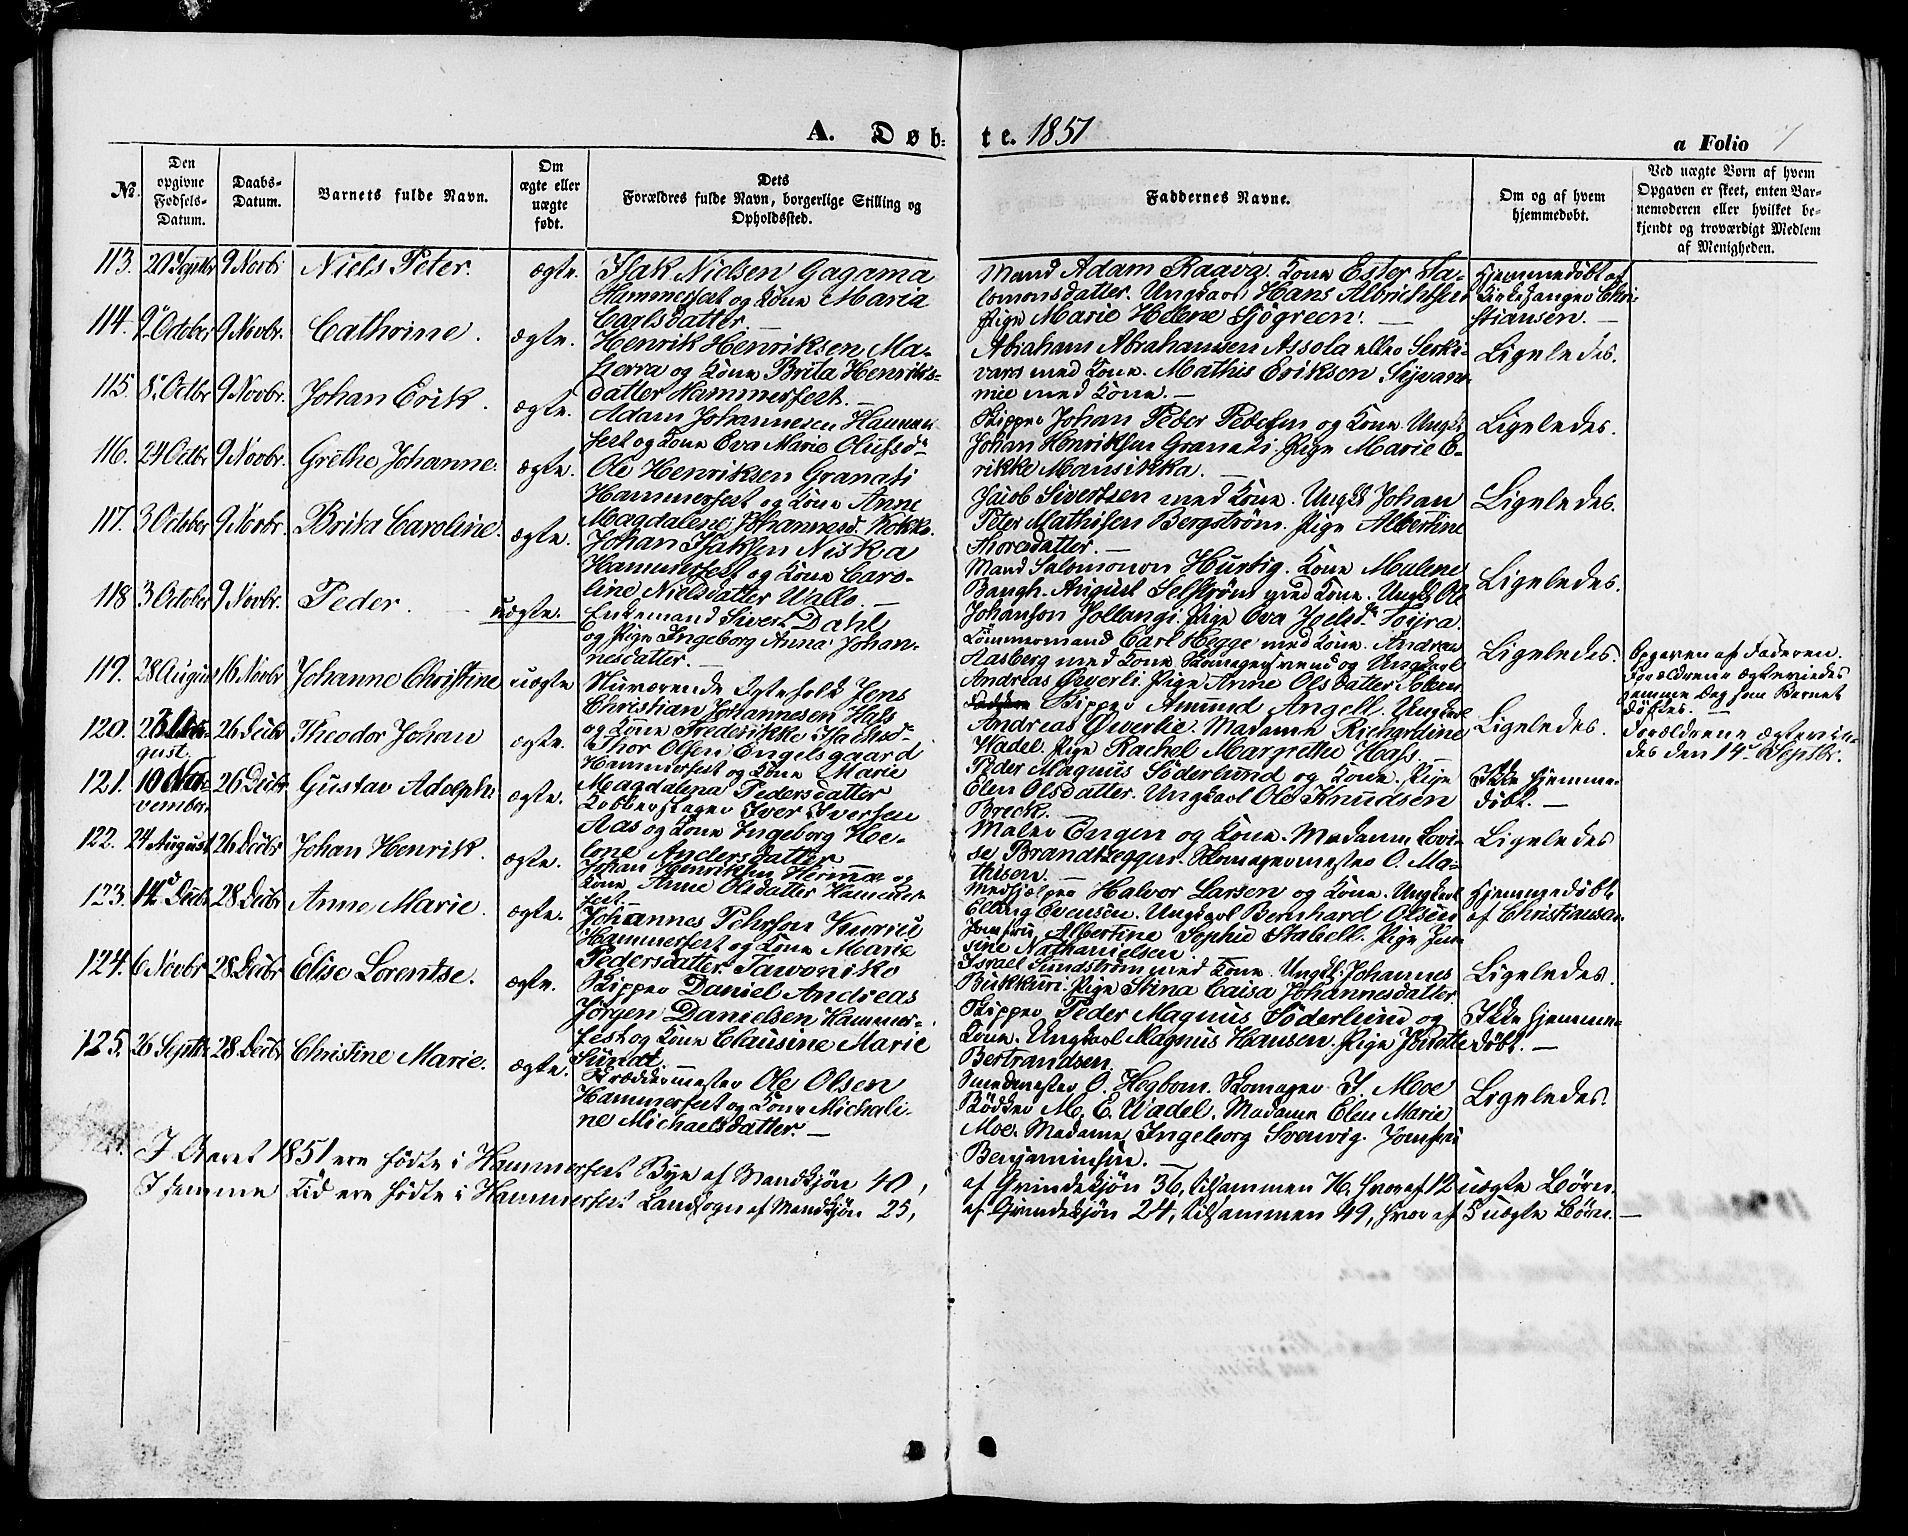 A. Døb-
te. 1851
a Folio 7
No.
Den opgivne Fødsels-Datum.
Daabs-Datum.
Barnets fulde Navn.
Om ægte eller uægte født.
Dets Forældres fulde Navn, borgerlige Stilling og Opholdssted.
Faddernes Navne.
Om og af hvem hjemmedøbt.
Ved uægte Børn af hvem Opgaven er skeet, enten Bar-nemoderen eller hvilket be-kjendt og troværdigt Medlem af Menigheden.
113. 20 Septbr 9 Novbr Niels Peter. ægte.
Isak Nielsen Gagama
Hammerfest og Kone Maria
Carlsdatter
Mand Adam Raava. Kone Ester Sa-
lomonsdatter. Ungkarl Hans Albrichtsen
Pige Marie Helene Sjögreen. —
Hjemmedøbt af
Kirkesanger Chri-
stiansen. —
114. 9 October 9 Novbr. Cathrine. ægte.
Henrik Henriksen Ma-
herra og Kone Brita Henriks-
datter Hammerfest. —
Abraham Abrahamsen Assola eller Serki-
vara med Kone. Mathis Erikson
med Kone. —
Ligeledes.
115. 8 Octbr 9 Novbr. Johan Erik. ægte.
Adam Johannesen Hammer-
fest og Kone Eva Marie Olufsd
Skipper Johan Peter Petersen og Kone. Ungk.
Johan Henriksen Granati. Pige Marie E-
rikke Mansikka. —
Ligeledes.
116. 24 Octbr 9 Novbr. Grethe Johanne. ægte.
Ole Henriksen Granati
Hammerfest og Kone Anne
Magdalene Johannesd. Kokko.
Jacob Sivertsen med Kone. Ungk Johan
Peter Mathisen Bergstrøm. Pige Albertine
Thoresdatter. —
Ligeledes.
117. 3 October 9 Novbr. Brita Caroline. ægte.
Johan Isaksen Niska
Hammerfest og Kone Caro-
line Nielsdatter Wallo. —
Mand Salomonon Hurtig. Kone Malene
Baugh. August Selstrøm med Kone. Ungk Ol
Johanson Jollangi. Pige Eva Joelsd. Töijra.
Ligeledes.
118 3 October 9 Novbr. Peder. — uægte.
Enkemand Sivert Dahl
og Pige Ingeborg Anna Johan-
nesdatter. —
Tömmermand Carl Hegge med Kone. Andreas
Aasberg med Kone. Skomagersvend og Ungkarl
Andreas Øyerli. Pige Anne Olsdatter
Ligeledes.
Opgaven af Faderen.
119. 28 August 16 Novbr Johanne Christine uægte
Nuværende Ægtefolk Jens
Christian Johannesen Hals
og Kone Frederikke Hansd
Skipper Amund Angell. Ungkarl
Andreas Øwerlie. Madame Richardine
Wadel. Pige Rachel Margrethe Hass.
Ligeledes.
Forældrene ægteviedes
samme Dag som Barnet
døbtes. —
Forældrene ægtevie-
des den 14 Septbr.
120. 23 Au-
gust. 26 Decbr Theodor Johan ægte.
Thor Olsen Engelsgaard
Hammerfest og Kone Marie
Magdalena Pedersdatter
Peder Magnus Söderlund og Kone. Pige
Elen Olsdatter. Ungkarl Ole Knudsen
Breck. —
Ikke hjemme-
døbt. —
121. 10 No-
vember. 26 Decbr Gustav Adolph. ægte.
Kobberslager Iver Iversen
Aas og Kone Ingeborg He-
lene Andersdatter
Maler Engen og Kone. Madame Lovi-
se Brandtzeggur. Skomagermester O. Ma-
thisen. —
Ligeledes
122. 24 August 26 Decbr Johan Henrik. ægte.
Johan Henriksen Herma og
Kone Anne Olsdatter Hammer-
fest.
Medhjælper Halvor Larsen og Kone. Ungkarl
Elling Evensen. Ungkarl Bernhard Olsen
Jomfru Albertine Sophie Stabell. Pige Jen-
sine Nathanielsen.
Hjemmedøbt
af Christiansen
123. 14 Decbr 28 Decbr Anne Marie. ægte.
Johannes Pehrson Kurvi
Hammerfest og Kone Marie
Pedersdatter Tawoniko
Israel Sundstrøm med Kone. Ungk. Johannes
Bukkuri. Pige Stina Caisa Johannesdatter.
Ligeledes.
124. 6 Novbr 28 Decbr Elise Lorentse. ægte.
Skipper Daniel Andreas
Jörgen Danielsen Hammer-
fest og Kone Clausine Marie
Sundt.
Skipper Peder Magnus Söderlund og
Kone. Ungkarl Magnus Hansen. Pige Jorotte
Bertrandsen.
Ikke hjemme-
døbt. —
125. 26 Septbr 28 Decbr Christine Marie. ægte.
Skræddermester Ole Olsen
Hammerfest og Kone Michali-
ne Michaelsdatter. —
Smedmester O. Hegbom. Skomager J. Moe
Bødker M. E. Wadel. Madame Elen Marie
Moe. Madame Ingeborg Jomfru
Benjaminsen. —
I Aaret 1851 ere fødte i Hammerfest Bye af Mandkjön 40, af Qvindekjön 36, tilsammen 76, hvoraf 12 uægte Børn.
I samme Tid ere fødte i Hammerfest Landsogn af Mandkjön 25, af Qvindekjön 24, tilsammen 49, hvoraf 5 uægte Børn. —